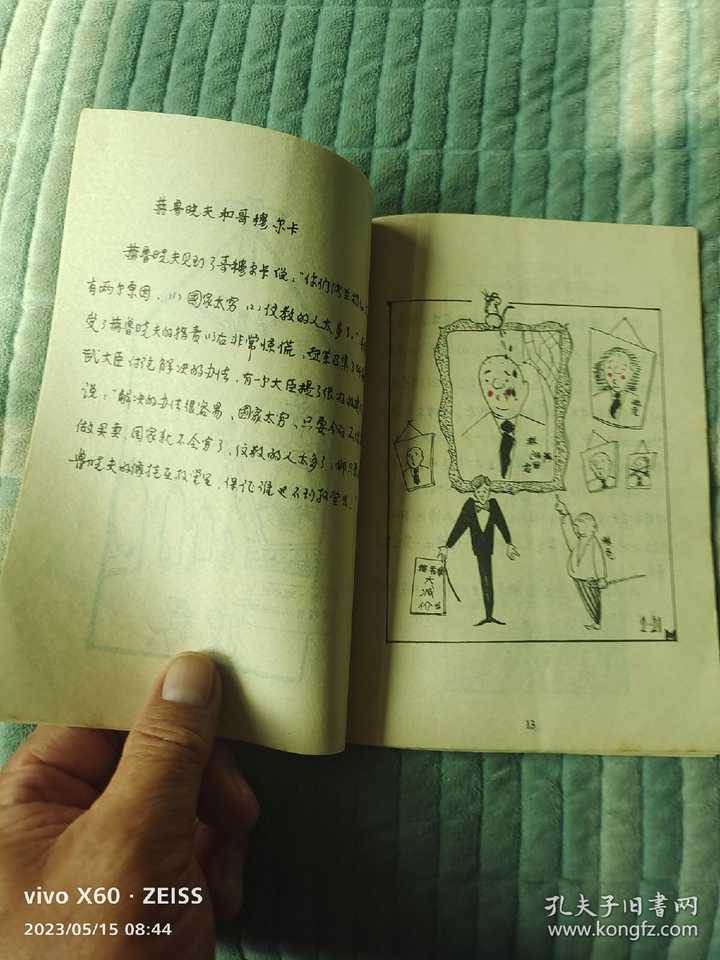 赫鲁晓夫和哥穆尔卡
赫鲁晓夫见到了哥穆尔卡说，"你们
有两个原因，(1)国家太穷(2)仪教的人太多了。"
受了赫鲁晓夫的指责以后非常惊慌，
武大臣讨论解决的办法，有一个大臣提了很
说："解决的办法很容易、国家太穷、只要
做买卖，国家就不会穷了，仪教的人太多了，
鲁晓夫的像挂在教堂里，保证谁也不到教堂
大减价
2-21
13
vivo X60 · ZEISS
2023/05/15 08:44
孔夫子旧书网
www.kongfz.com